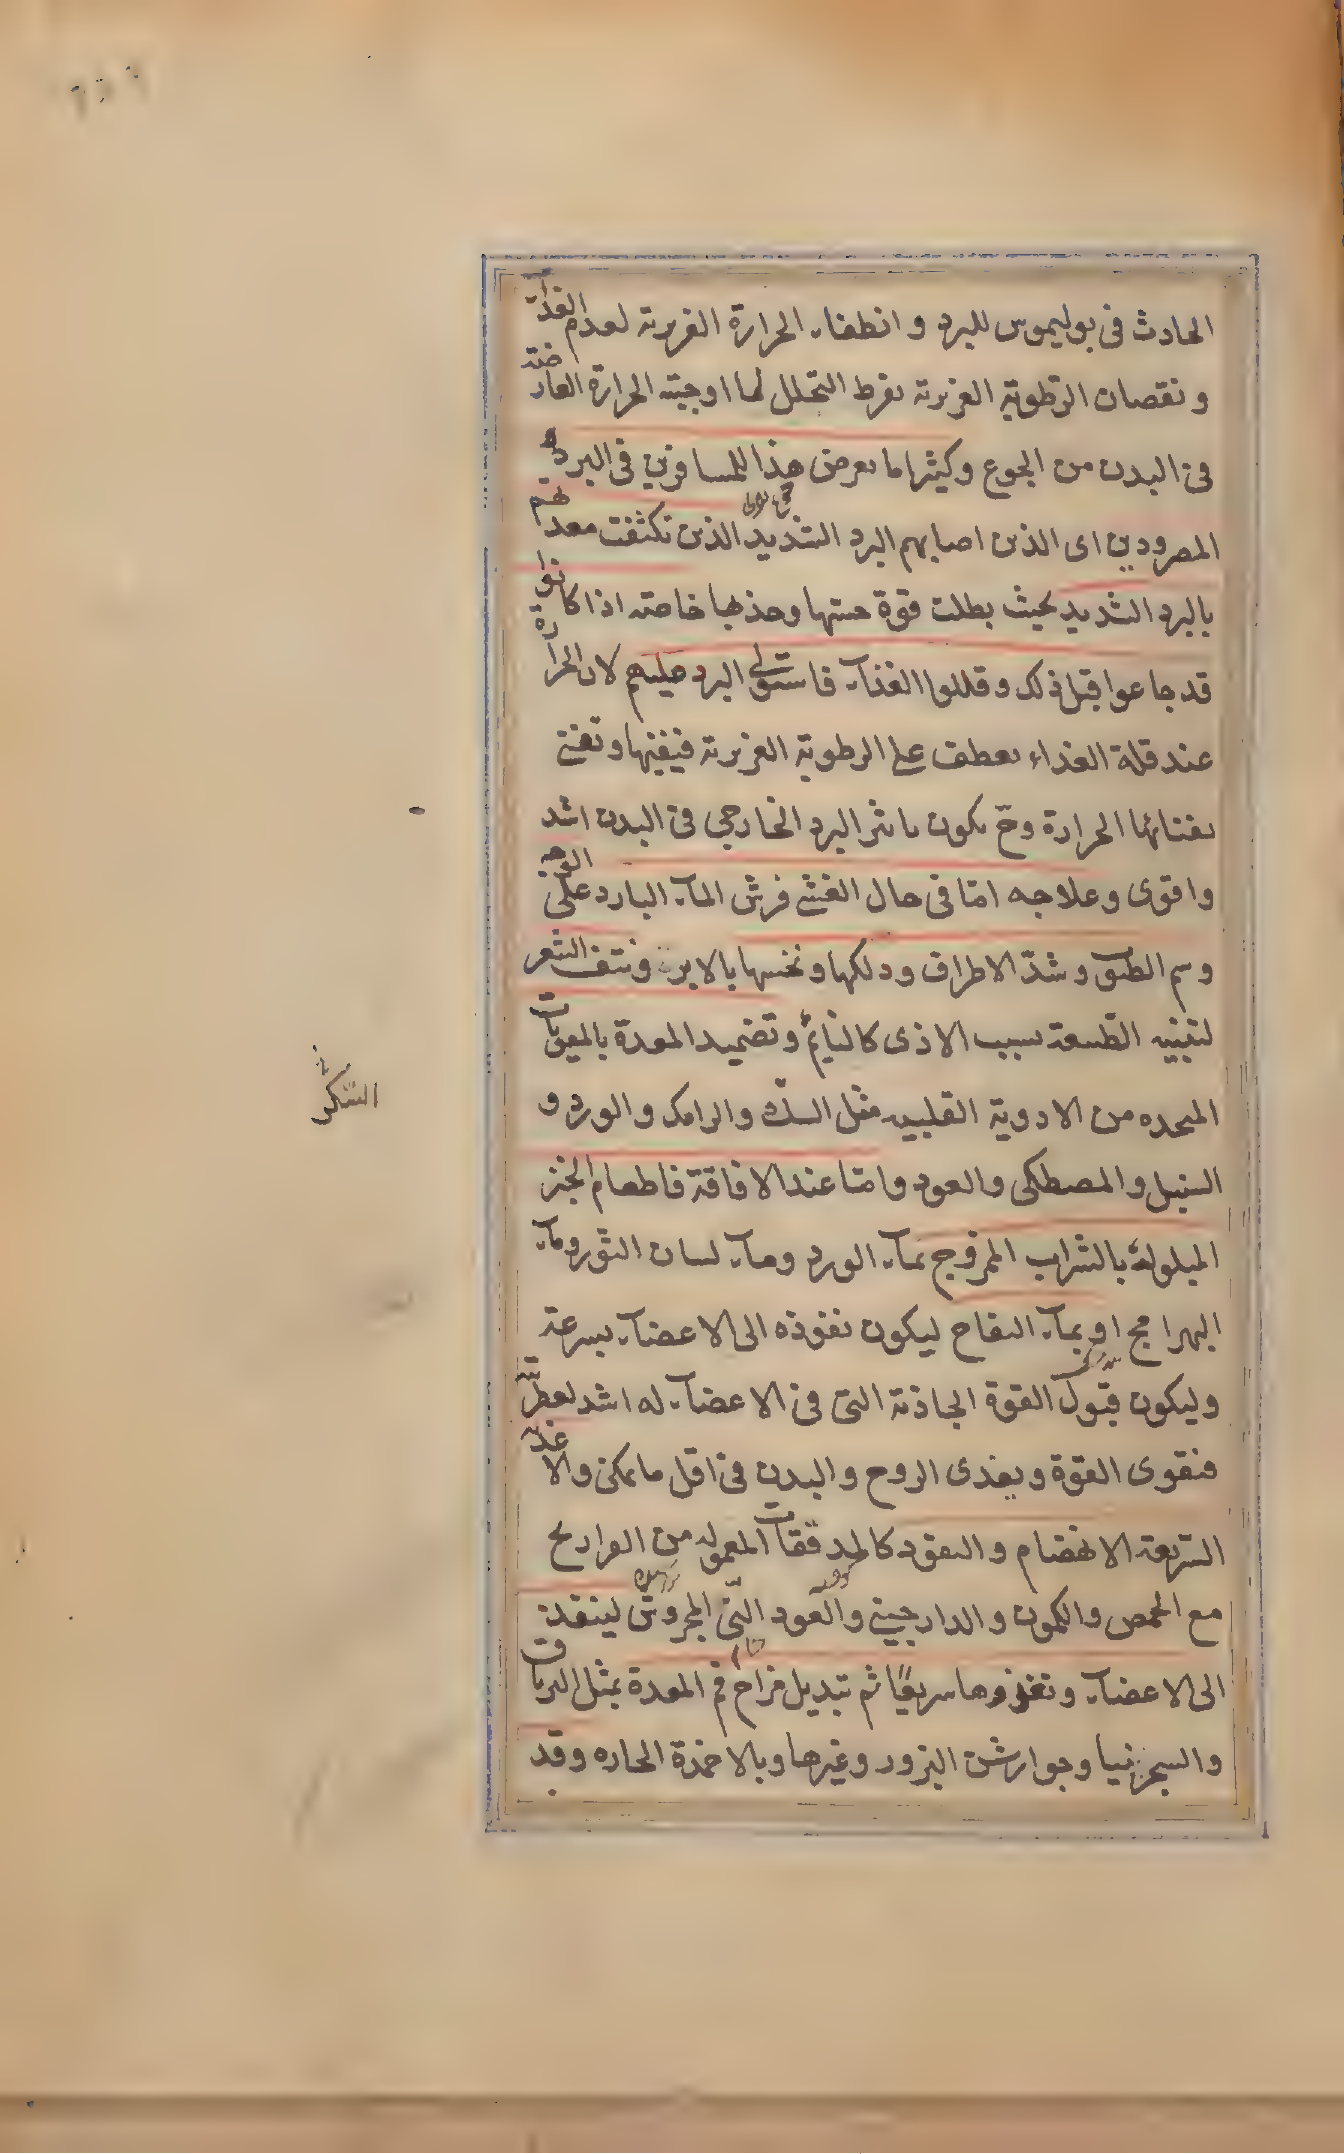 الحادث فى بوليموس للبرد و انطفاء الحرارة الغريزية لعدم الغذاء
و نقصان الرطوبة الغريزية بفرط التحلل لما اوجبته الحرارة العارضة
فى البدن من الجوع وكثيرا ما يعرض هذا للمسافرين فى البرد
المصرودين اى الذين اصابهم البرد الشديد الذين تكثفت معدهم
بالبرد الشديد بحيث بطلت قوة حسها وجذبها خاصة اذا كانوا
قد جاعوا قبل ذلك و قللوا الغذاء فاستولى البرد عليهم لان الحرارة
عند قلة الغذاء تعطف على الرطوبة الغريزية فيفنيها و تفنى
بفنائها الحرارة وح يكون تاثير البرد الخارجى فى البدن اشد
واقوى وعلاجه امّا فى حال الغشى فرش الماء البارد على الوجه
وشم الطيب وشدّ الاطراف ودلكها ونخسها بالابر ونتف الشعر
لتنبيه الطبيعة بسبب الاذى كالنائم وتضميد المعدة بالمقويات
المتخذه من الادوية القلبيه مثل السكّ والرامك والورد و
السنبل والمصطكى والعود وامّا عند الافاقة فاطعام الخبز
المبلولة بالشراب الممزوج بماء الورد وماء لسان الثور وماء
البهرامج او بماء التفاح ليكون نفوذه الى الاعضاء بسرعة
وليكون قبول القوة الجاذبة التى فى الاعضاء له اشد لعطريّته
فتقوى القوة ويغذى الروح والبدن فى اقل ما يمكن والاغذية
السريعة الانهضام والنفوذ كالمدققات المعموله من الفراريج
مع الحمص والكمون والدارچينى والعود النّى المجروش لينفذ
الى الاعضاء وتغذوها سريعًا ثم تبديل مزاج فم المعدة بمثل الترياق
والسجزنيا وجوارش البزور وغيرها وبالاضمدة الحاره وقد
السّكر